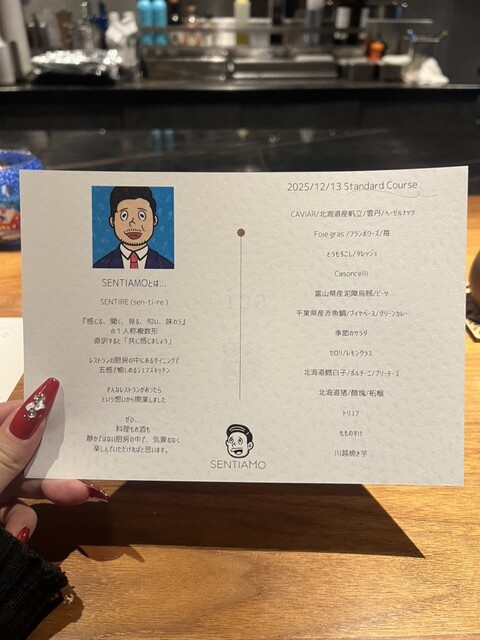 SENTIAMOとは…
SENTIRE (sen-ti-re)
『感じる、聞く、見る、匂い、味わう』
の1人称複数形
直訳すると「共に感じましょう」
レストランの厨房の中にあるダイニングで
五感で愉しめるシェフズキッチン
そんなレストランがあったら
という想いから開業しました
ぜひ、
料理もお酒も
静かではない厨房の中で、気兼ねなく
楽しんでいただければと思います。
2025/12/13 Standard Course
CAVIAR/北海道産帆立/雲丹/ヘーゼルナッツ
Foie gras /フランボワーズ/苺
とうもろこし/クレッシェ
Casoncelli
富山県産泥障烏賊/ビーツ
千葉県産赤魚鯛/ブイヤベース/グリーンカレー
季節のサラダ
セロリ/レモングラス
北海道鱈白子/ポルチーニ/ブリーチーズ
北海道猪/酸塊/柘榴
トリュフ
もものすけ
川越焼き芋
SENTIAMO